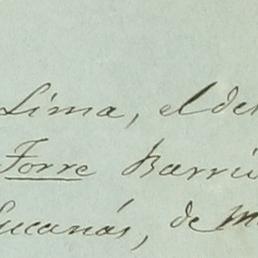 Lima, el del
Torre Barrio
Lucanás, de M